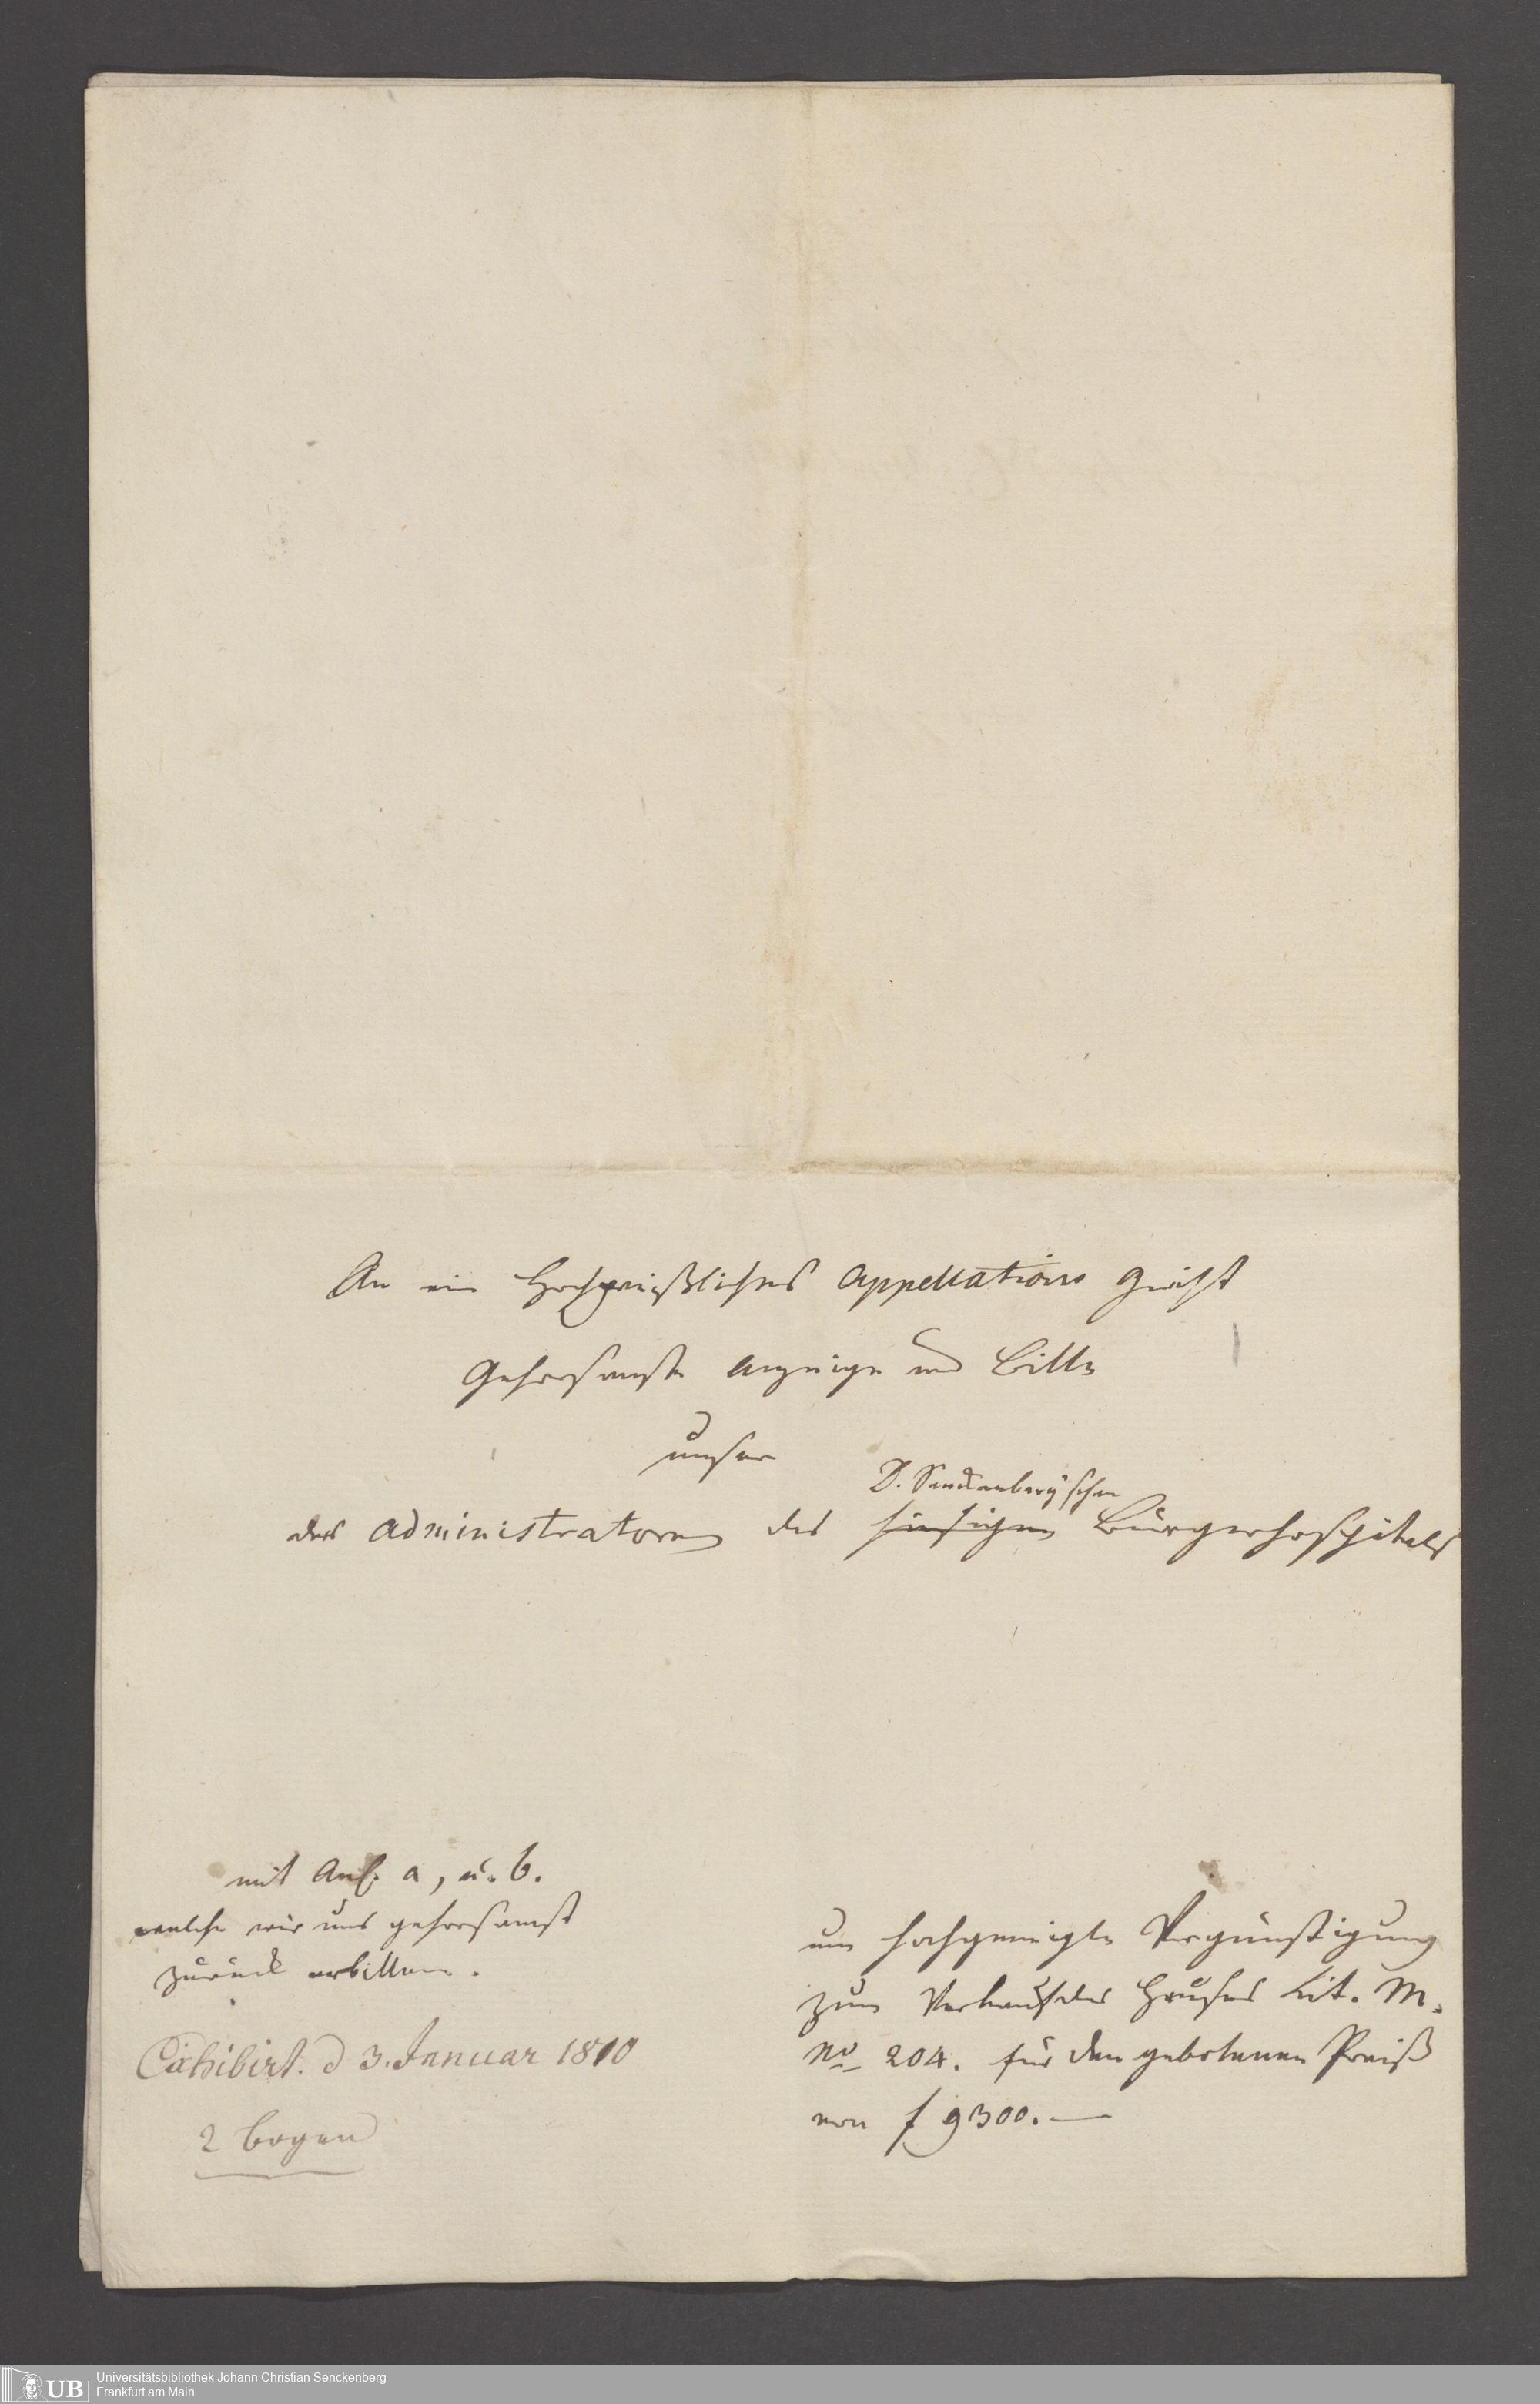 An ein Hochpreißliches Appellations Gericht
Gehorsamste Anzeige und Bitte
unser
D. Senckenberg'schen
der Administratoren des hiesigen Bürgerhospitals
mit Anl. a, u. b.
welche wir uns gehorsamst
zurück erbitten.
Exhibirt. d 3. Januar 1810
2 Bogen
um hochgeneigte Vergünstigung
zum Verkauf des Hauses Lit. M.
No 204. für den gebotenen Preiß
von f 9300.—
UB
Universitätsbibliothek Johann Christian Senckenberg
Frankfurt am Main